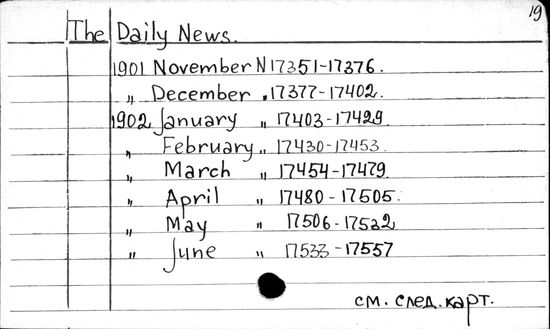 19
The Daily News.
1901 November N 17351-17376.
„ December „ 17377-17402.
1902 January „ 17403-17429
„ February „ 17430-17453.
„ March „ 17454-17479.
„ April „ 17480-17505.
„ May „ 17506-17532
„ June „ 17533-17557
см. след. карт.